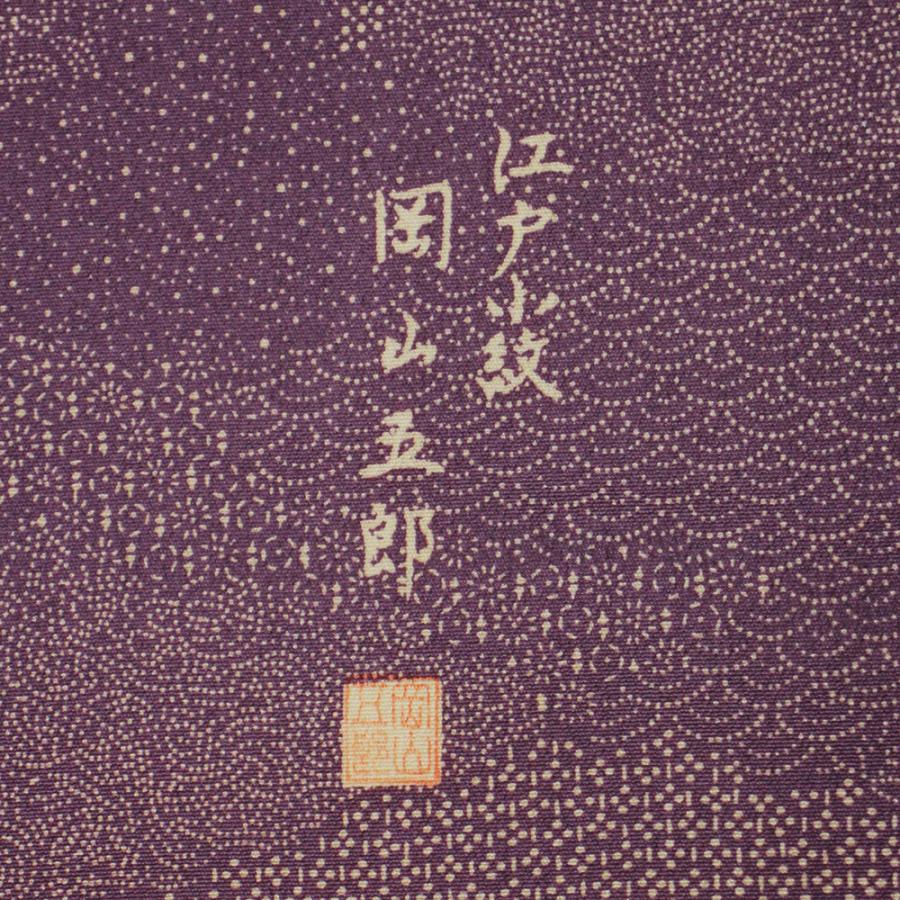 江戸小紋
岡山五郎
岡山
五郎